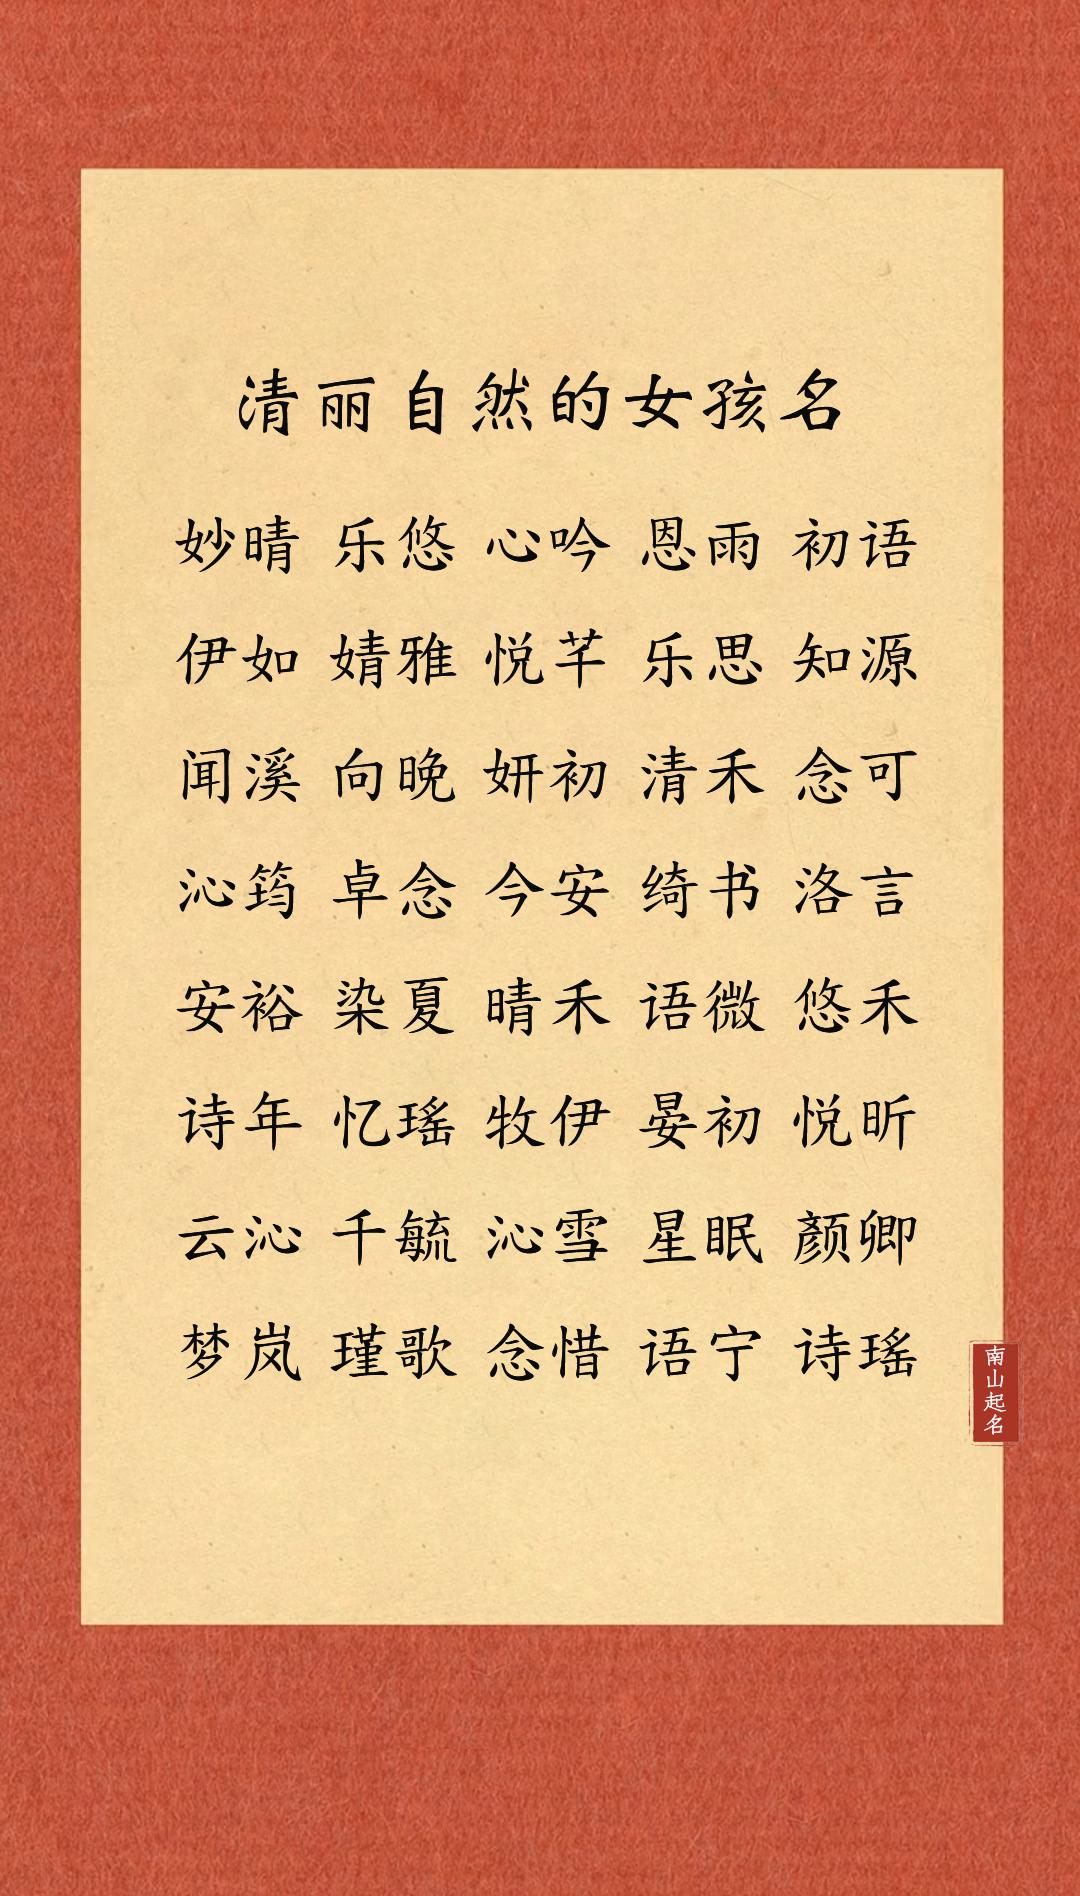 清丽自然的女孩名
妙晴 乐悠 心吟 恩雨 初语
伊如 婧雅 悦芊 乐思 知源
闻溪 向晚 妍初 清禾 念可
沁筠 卓念 今安 绮书 洛言
安裕 染夏 晴禾 语微 悠禾
诗年 忆瑶 牧伊 晏初 悦昕
云沁 千毓 沁雪 星眠 颜卿
梦岚 瑾歌 念惜 语宁 诗瑶
南山起名